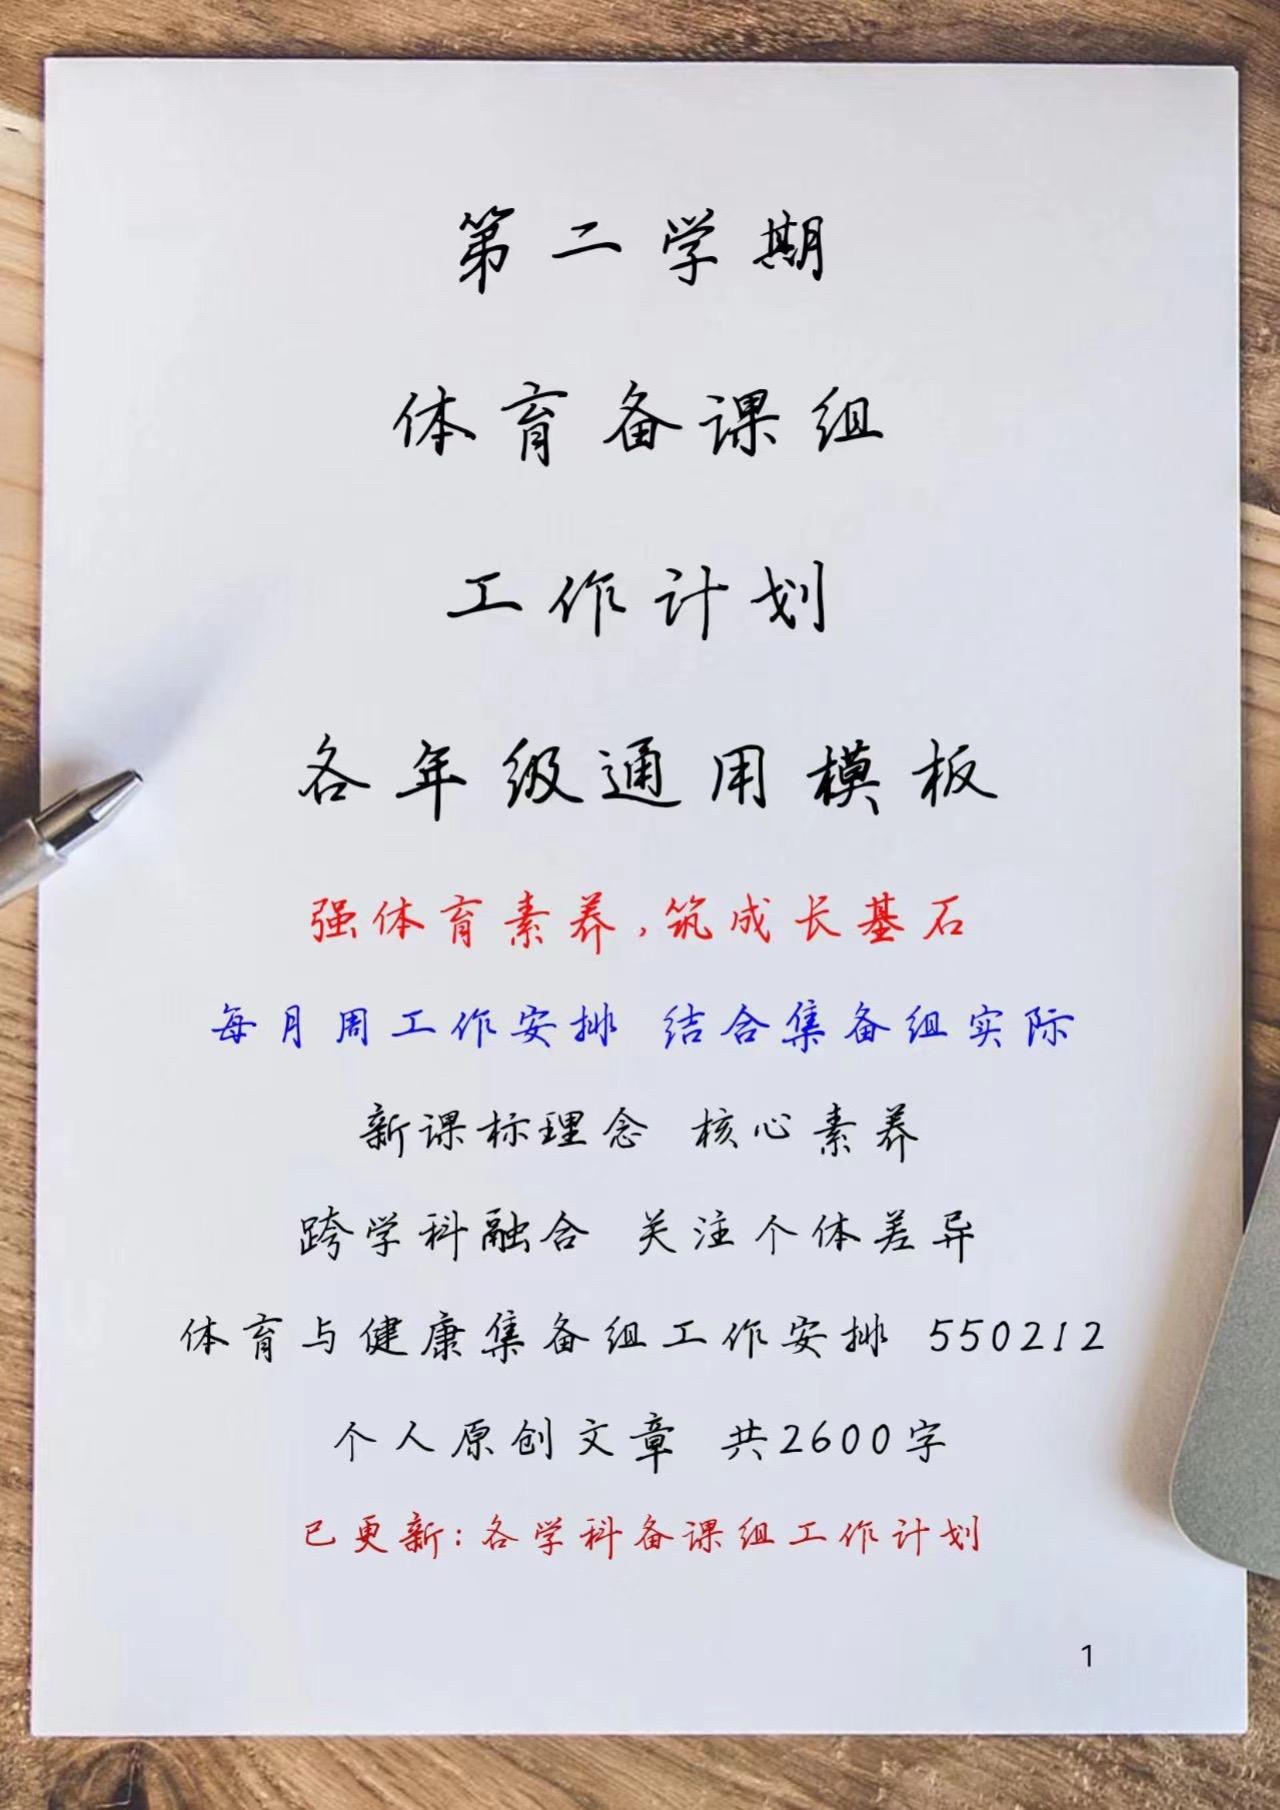 第二学期
体育备课组
工作计划
各年级通用模板
强体育素养,筑成长基石
每月周工作安排 结合集备组实际
新课标理念 核心素养
跨学科融合 关注个体差异
体育与健康集备组工作安排 550212
个人原创文章 共2600字
已更新:各学科备课组工作计划
1